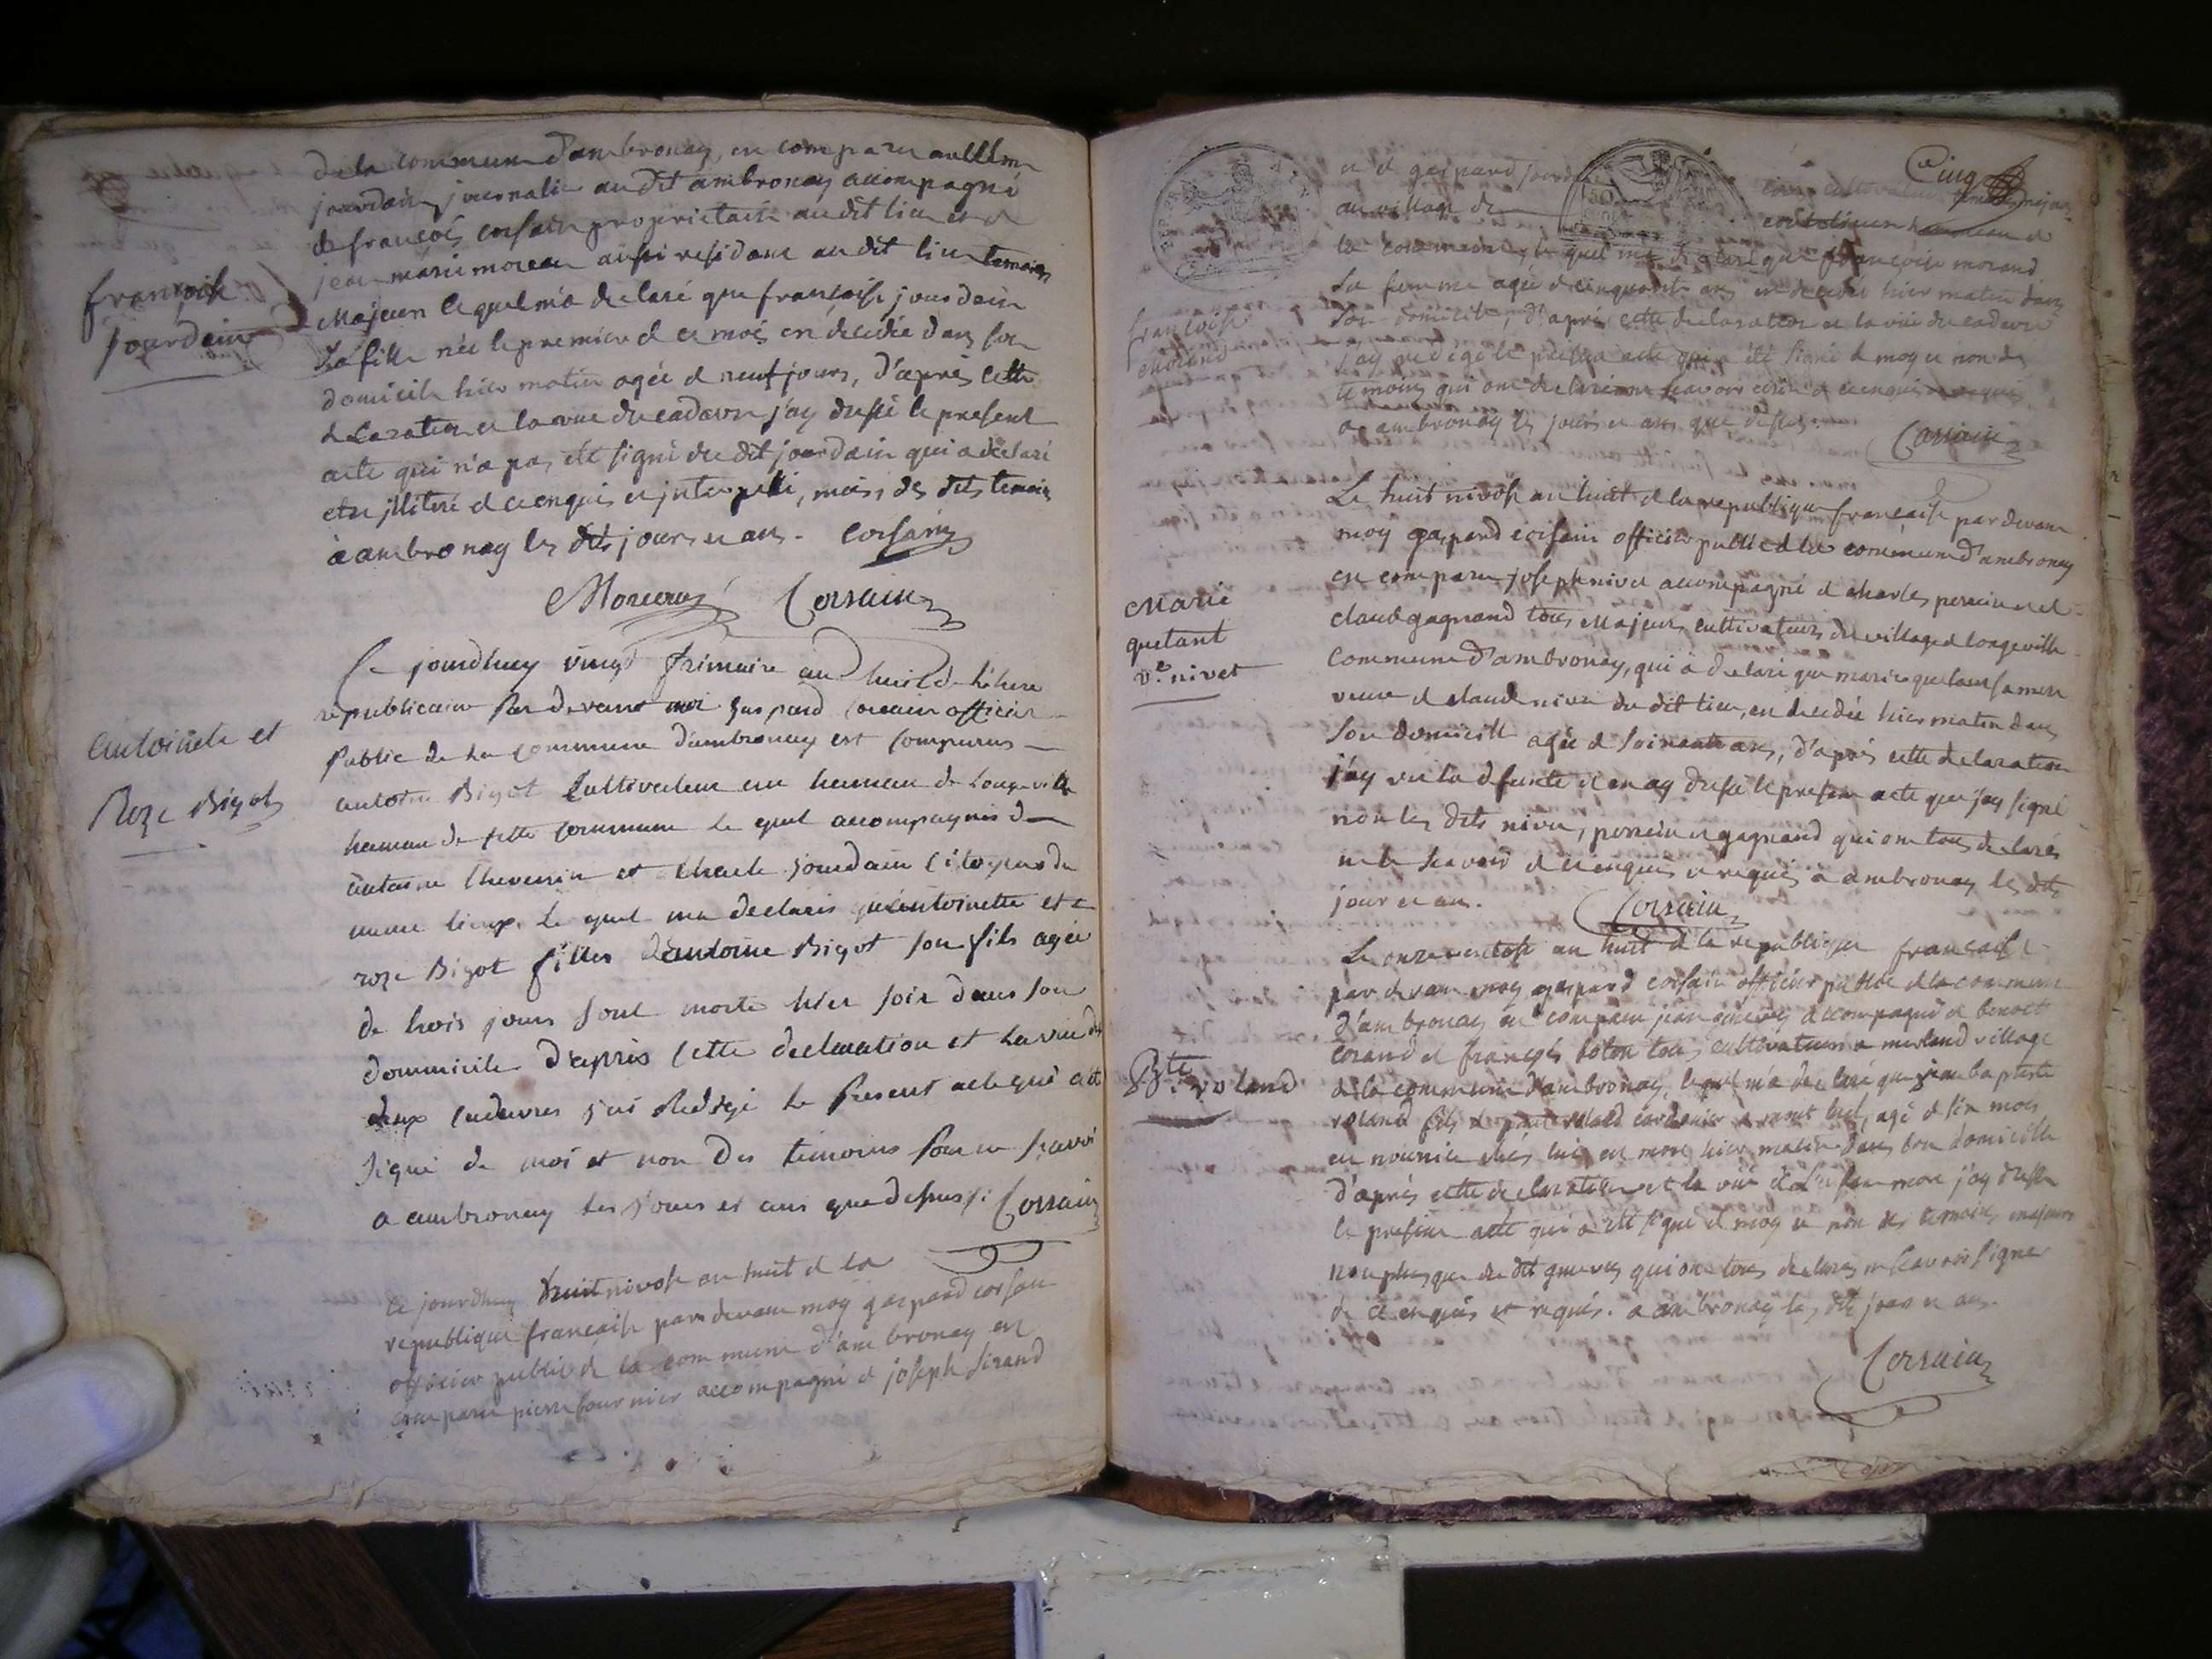 de la commune d'ambronay, en comparu anthelme
jourdain journalier au dit ambronay accompagné
de françois corsain proprietaire au dit lieu et de
jean marie moreau aussi residant au dit lieu temoins
Majeurs lequel m'a declaré que françoise jourdain
sa fille née le premier de ce mois en decedée dans son
domicile hier matin agée de neuf jours, d'après cette
declaration et la vue du cadavre j'ay dressé le present
acte qui n'a pas été signé du dit jourdain qui a declaré
etre illiteré de ce enquis et interpellé, mais des dits temoins
à ambronay les dits jours et an. corsain
Moreau Corsain
françoise
jourdain
Ce jourdhuy vingt frimaire an huit de l'êhre
republicaine Par devant moi gaspard Corsain officier
Public de la Commune d'ambronay est Comparus
antoine Bigot Cultivateur au hameau de Longeville
hameau de cette Commune le quel accompagnés de
antoine thevenin et charle jourdain Citoyens du
meme lieux. le quel ma declarés qu'antoinette et
roze Bigot filles d'antoine Bigot son fils agée
de trois jours sont morte hier soir dans son
dommicile d'après Cette declaration et la vue des
deux cadavres j'ai Redigé le Present acte qui a été
signé de moi et non des temoins Pour ne scavoir
a ambronay les jours et ans que dessus: Corsain
antoinete et
Roze Bigot
Ce jourdhuy huit nivose an huit de la
republique francaise par devant moy gaspard corsain
officier public de la commune d'ambronay en
comparu pierre fournier accompagné de joseph Sirand
Cinq
et de gaspard
au village de
la commune, le quel m'a declaré que francoise morand
sa femme agée de cinquante ans en decedée hier matin dans
son domicile, d'après cette declaration et la vüe du cadavre
j'ay redigé le present acte qui a été signé de moy et non des
temoins qui ont declaré ne scavoir ecrire de ce enquis et requis
a ambronay les jours et ans que dessus.
Corsain
françoise
Morand
Le huit nivose an huit de la republique francaise par devant
moy gaspard corsain officier public de la commune d'ambronay
en comparu joseph nivet accompagné de charles perrin et de
claude gagnand tous Majeurs cultivateurs du village de longeville
commune d'ambronay, qui à declaré que marie quetant sa mere
veuve de claude nivet du dit lieu, en decedée hier matin dans
son domicile agée de soixante ans, d'après cette declaration
j'ay vu la defunte et en ay dressé le present acte que j'ay signé
non les dits nivet, perrin et gagnand qui ont tous declarés
ne le scavoir de ce enquis et requis à ambronay les dits
jour et an.
Corsain
Marie
quetant
ve. nivet
Le onze ventose an huit de la republique francaise
par devant moy gaspard corsain officier public de la commune
d'ambronay en comparu jean accompagné de benoit
et françois tous cultivateurs a merland village
de la commune d'ambronay, lequel m'a declaré que jean baptiste
roland fils de roland agé de six mois
en nourrice chés lui en mort hier matin dans son domicile
d'après cette declaration et la vüe de l'enfant mort j'ay dressé
le present acte qui a été signé de moy et non des temoins majeurs
non plus que du dit qui ont tous declarés ne scavoir signer
de ce enquis et requis. a ambronay les dits jour et an.
Corsain
Bte. roland